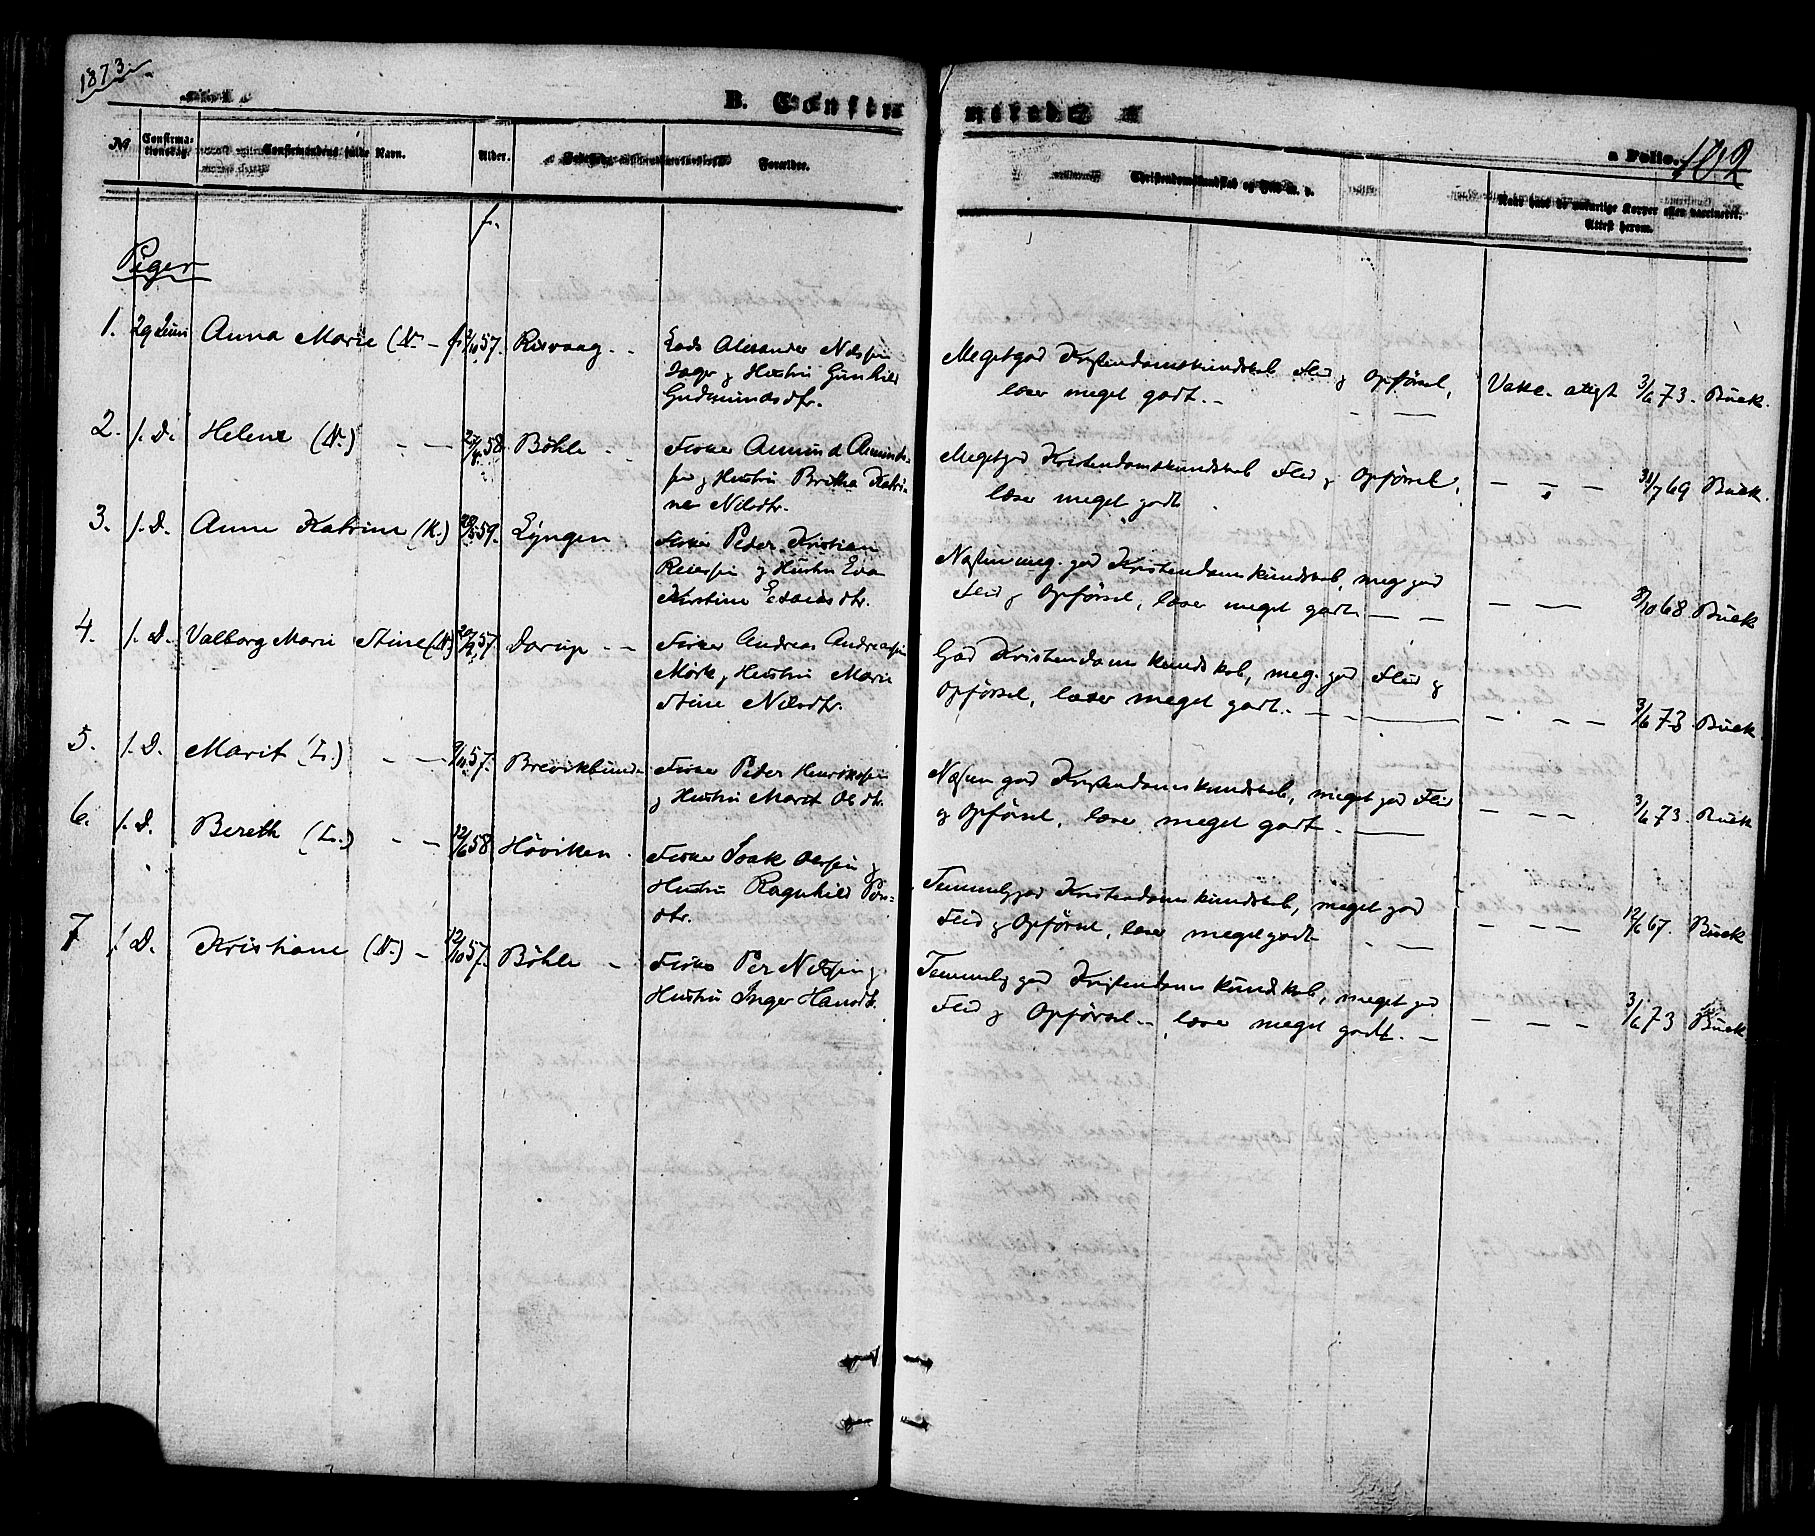 1873.
B. Confirmerede
Folio. 102
No
Confirmationsdag.
Confirmandens fulde Navn.
Alder.
Forældre.
Christendomskundskab og Flid m. v.
Attest herom.
f.
Piger
1. 29 Juni Anna Marie (N. - f. 57. Risvaag - - Lods Alexander Nilssen
Jager og Hustru Gunhild
Gudmundsdtr.
Meget god Kristendomskundskab Flid og Opførsel,
læser meget godt. - - — Vakc. attest 3/6 73. Buck.
2. s. D. Helene (N.) - — 58. Böhle - - Fisker Amund Amund-
sen og Hustru Britha Katri-
ne Nilsdtr.
Meget god Kristendomskundskab Flid og Opførsel,
læser meget godt — — — 31/7 69 Buck.
3. s. D. Anne Katrine (K.) 59. Lyngen - Fisker Peder Kristian
og Hustru Eva
Kirstine
Næsten meg. god Kristendomskundskab, meg. god
Flid og Opførsel, læser meget godt — — — — 10 68 Buck
4. s. D. Valborg Marie Stine (N.) 57. Dorup - - Fisker Andreas Andreassen
Mörk og Hustru Marie
Stine Nilsdtr.
God Kristendomskundskab, meg. god Flid og
Opførsel, læser meget godt. - - — - - - 3/6 73 Buck
5. s. D. Marit (L.) - — 9/11 57. Brevikbund - Fisker Peder Henriksen
og Hustru Marit Olsdtr.
Næsten god Kristendomskundskab, meget god Flid
og Opførsel, læser meget godt - — — - - 3/6 73. Buck
6. s. D. Bereth (L.) - — 12/6 58 Höviken - Fisker Isak Olsen og
Hustru Ragnhild
dtr.
Temmelig god Kristendomskundskab, meget god
Flid og Opførsel, læser meget godt - — - - - 12/6 67. Buck
7 s. D. Kristiane (N.) - 12/10 57. Böhle - Fisker Per Nilssen og
Hustru Inger Hansdtr.
Temmelig god Kristendomskundskab, meget god
Flid og Opførsel - læser meget godt. — — - - 3/6 73 Buck